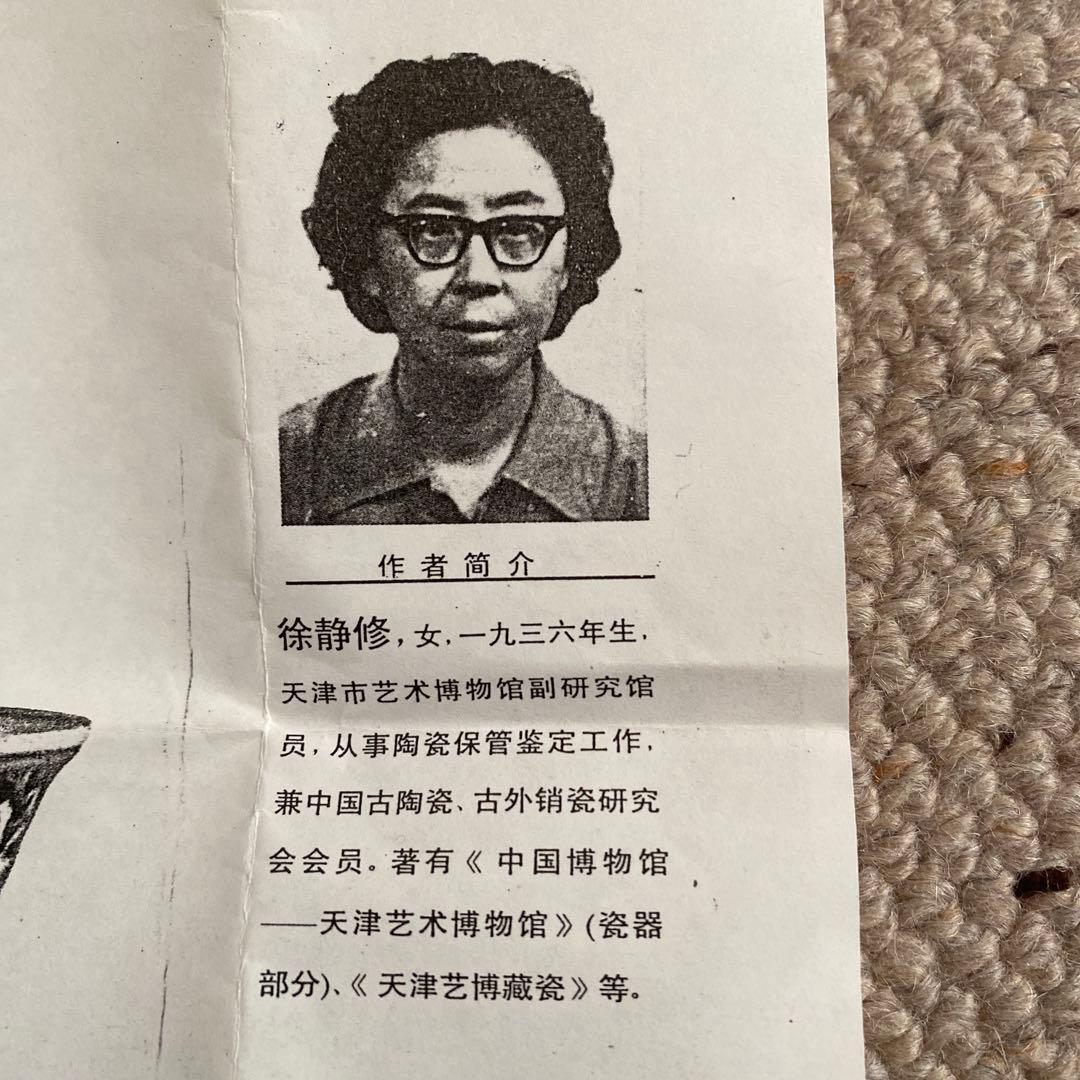 作者简介
徐静修，女，一九三六年生，
天津市艺术博物馆副研究馆
员，从事陶瓷保管鉴定工作，
兼中国古陶瓷、古外销瓷研究
会会员。著有《中国博物馆
——天津艺术博物馆》(瓷器
部分)、《天津艺博藏瓷》等。